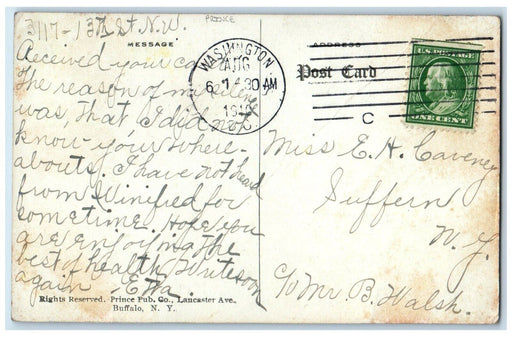 3117-13th St N.W.
PRINCE
MESSAGE
ADDRESS
WASHINGTON
AUG
6
1 30 AM
191
C
Post Card
U.S. POSTAGE
ONE CENT
Received your ca
The reason of my
was that I did not
know your where-
abouts. I have not heard
from Winified for
sometime. Hope you
are enjoying the
best of health. Write soon
again Etta.
Miss E. H. Caveney
Suffern
N.Y.
c/o Mr B. Walsh.
Rights Reserved. Prince Pub. Co., Lancaster Ave.,
Buffalo, N. Y.